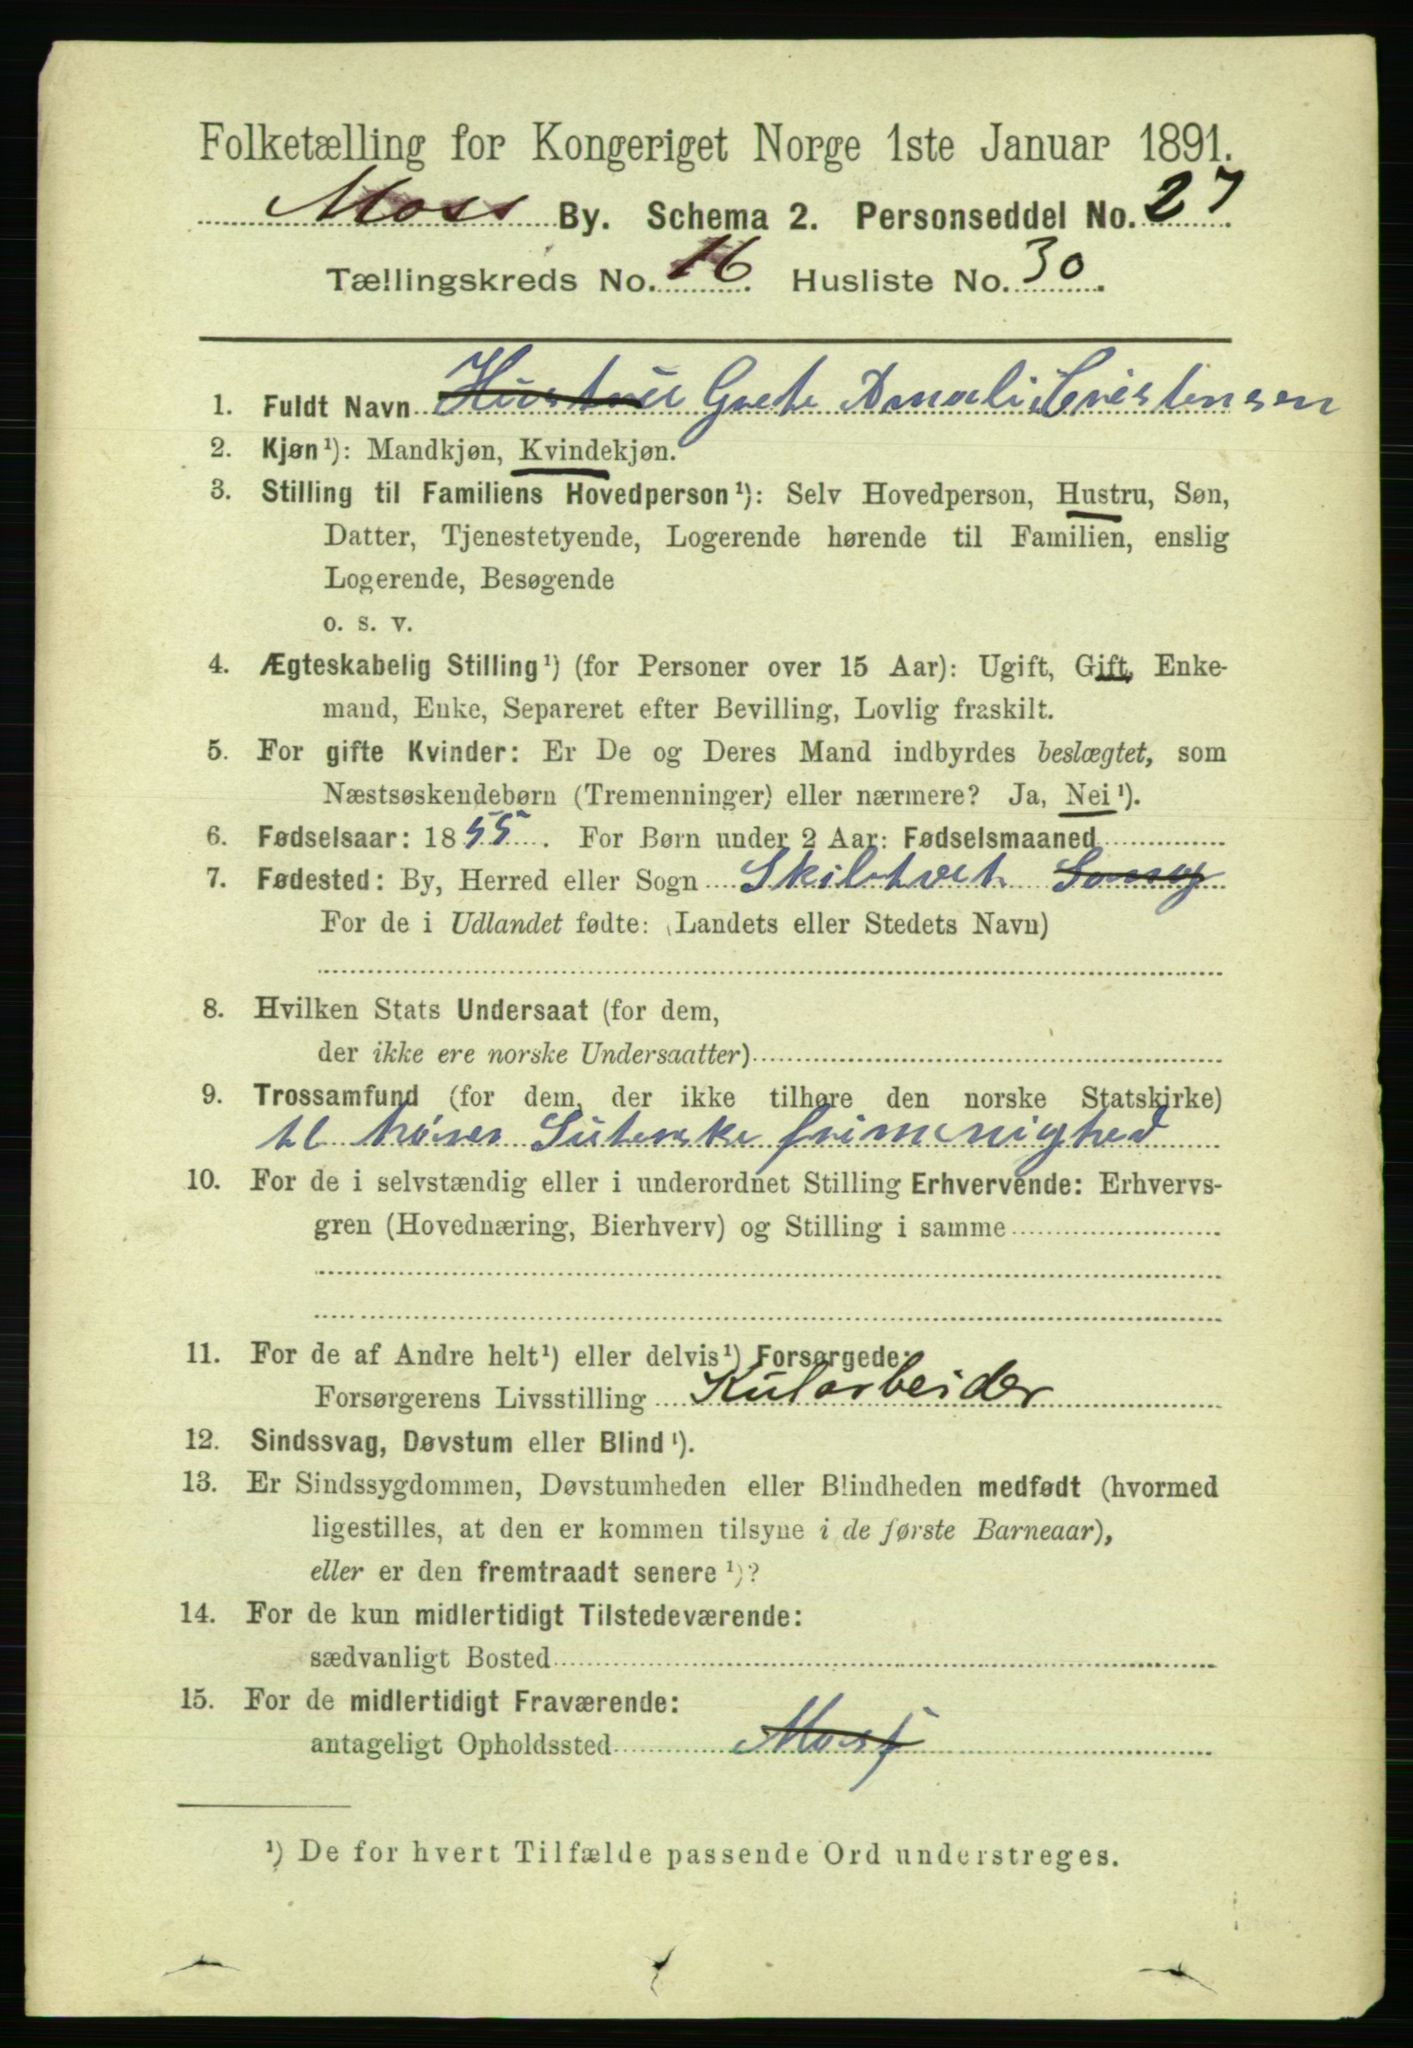 Folketælling for Kongeriget Norge 1ste Januar 1891.
Moss By. Schema 2. Personseddel No. 27.
Tællingskreds No. 16. Husliste No. 30.
1. Fuldt Navn Hustrue Grete Amali Cristensen
2. Kjøn¹): Mandkjøn, Kvindekjøn.
3. Stilling til Familiens Hovedperson¹): Selv Hovedperson, Hustru, Søn,
Datter, Tjenestetyende, Logerende hørende til Familien, enslig
Logerende, Besøgende
o. s. v.
4. Ægteskabelig Stilling¹) (for Personer over 15 Aar): Ugift, Gift, Enke-
mand, Enke, Separeret efter Bevilling, Lovlig fraskilt.
5. For gifte Kvinder: Er De og Deres Mand indbyrdes beslægtet, som
Næstsøskendebørn (Tremenninger) eller nærmere? Ja, Nei¹).
6. Fødselsaar: 1855. For Børn under 2 Aar: Fødselsmaaned
7. Fødested: By, Herred eller Sogn Skibtvet
For de i Udlandet fødte: (Landets eller Stedets Navn)
8. Hvilken Stats Undersaat (for dem,
der ikke ere norske Undersaatter)
9. Trossamfund (for dem, der ikke tilhøre den norske Statskirke)
til hører Luterske frimenighed
10. For de i selvstændig eller i underordnet Stilling Erhvervende: Erhvervs-
gren (Hovednæring, Bierhverv) og Stilling i samme
11. For de af Andre helt¹) eller delvis¹) Forsørgede:
Forsørgerens Livsstilling Kularbeider
12. Sindssvag, Døvstum eller Blind¹).
13. Er Sindssygdommen, Døvstumheden eller Blindheden medfødt (hvormed
ligestilles, at den er kommen tilsyne i de første Barneaar),
eller er den fremtraadt senere¹)?
14. For de kun midlertidigt Tilstedeværende:
sædvanligt Bosted
15. For de midlertidigt Fraværende:
antageligt Opholdssted Moss
¹) De for hvert Tilfælde passende Ord understreges.